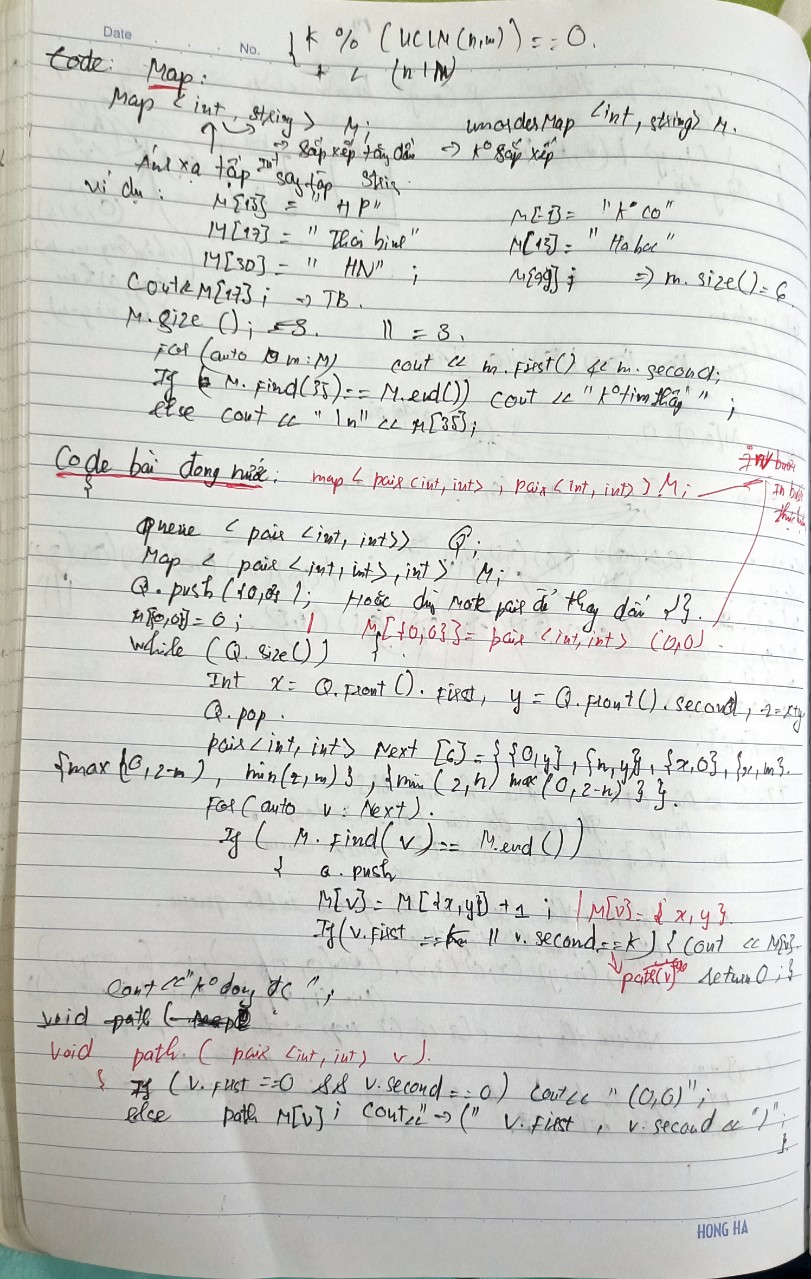 Date
No.
{ K % (UCLN(n,m)) == 0.
+ < (n+m)
Code: Map:
Map <int, string> M; unorderMap <int, string> M.
=> Sắp xếp tăng dần -> K° Sắp xếp
Ánh xạ tập Int sang tập Strin.
Ví dụ:
M[15] = "HP" M[-1] = "K° co"
M[17] = "Thái bình" M[13] = "Ha bac"
M[30] = "HN" ; M[99]; => m.size() = 6
Cout<<M[17]; -> TB.
M.size(); // = 3.
For (auto m: M) cout << m.first() << m.second;
If (M.find(35) == M.end()) cout << "K° tìm thấy" ;
else cout << "\n" << M[35];
Code bài đong nước: map < pair <int, int> , pair <int, int> > M;
In bước
{
Queue < pair <int, int>> Q;
Map < pair <int, int>, int> M;
Q.push({0,0}); Hoặc dùng make pair để thay dấu {}.
M[0,0] = 0; | M[{0,0}] = pair <int, int> (0,0).
While (Q.size()) {
Int x = Q.front().first, y = Q.front().second, z = x+y
Q.pop.
pair<int, int> Next [6] = { {0,y}, {n,y}, {x,0}, {x,m}.
{max(0,z-m), min(z,m)}, {min(z,n) max(0,z-n)} }.
For (auto v: Next).
If (M.find(v) == M.end())
{ Q.push
M[v] = M[{x,y}] + 1 ; | M[v] = {x,y}
If (v.first == k || v.second == k) { Cout << M[v].
path(v) return 0; }
Cout <<"K° dong đc";
void path (
void path. ( pair <int, int> v ).
{ If (v.first == 0 && v.second == 0) cout << "(0,0)";
else path M[v] ; cout<<"->(" v.first , v.second << ")";
}.
HONG HA